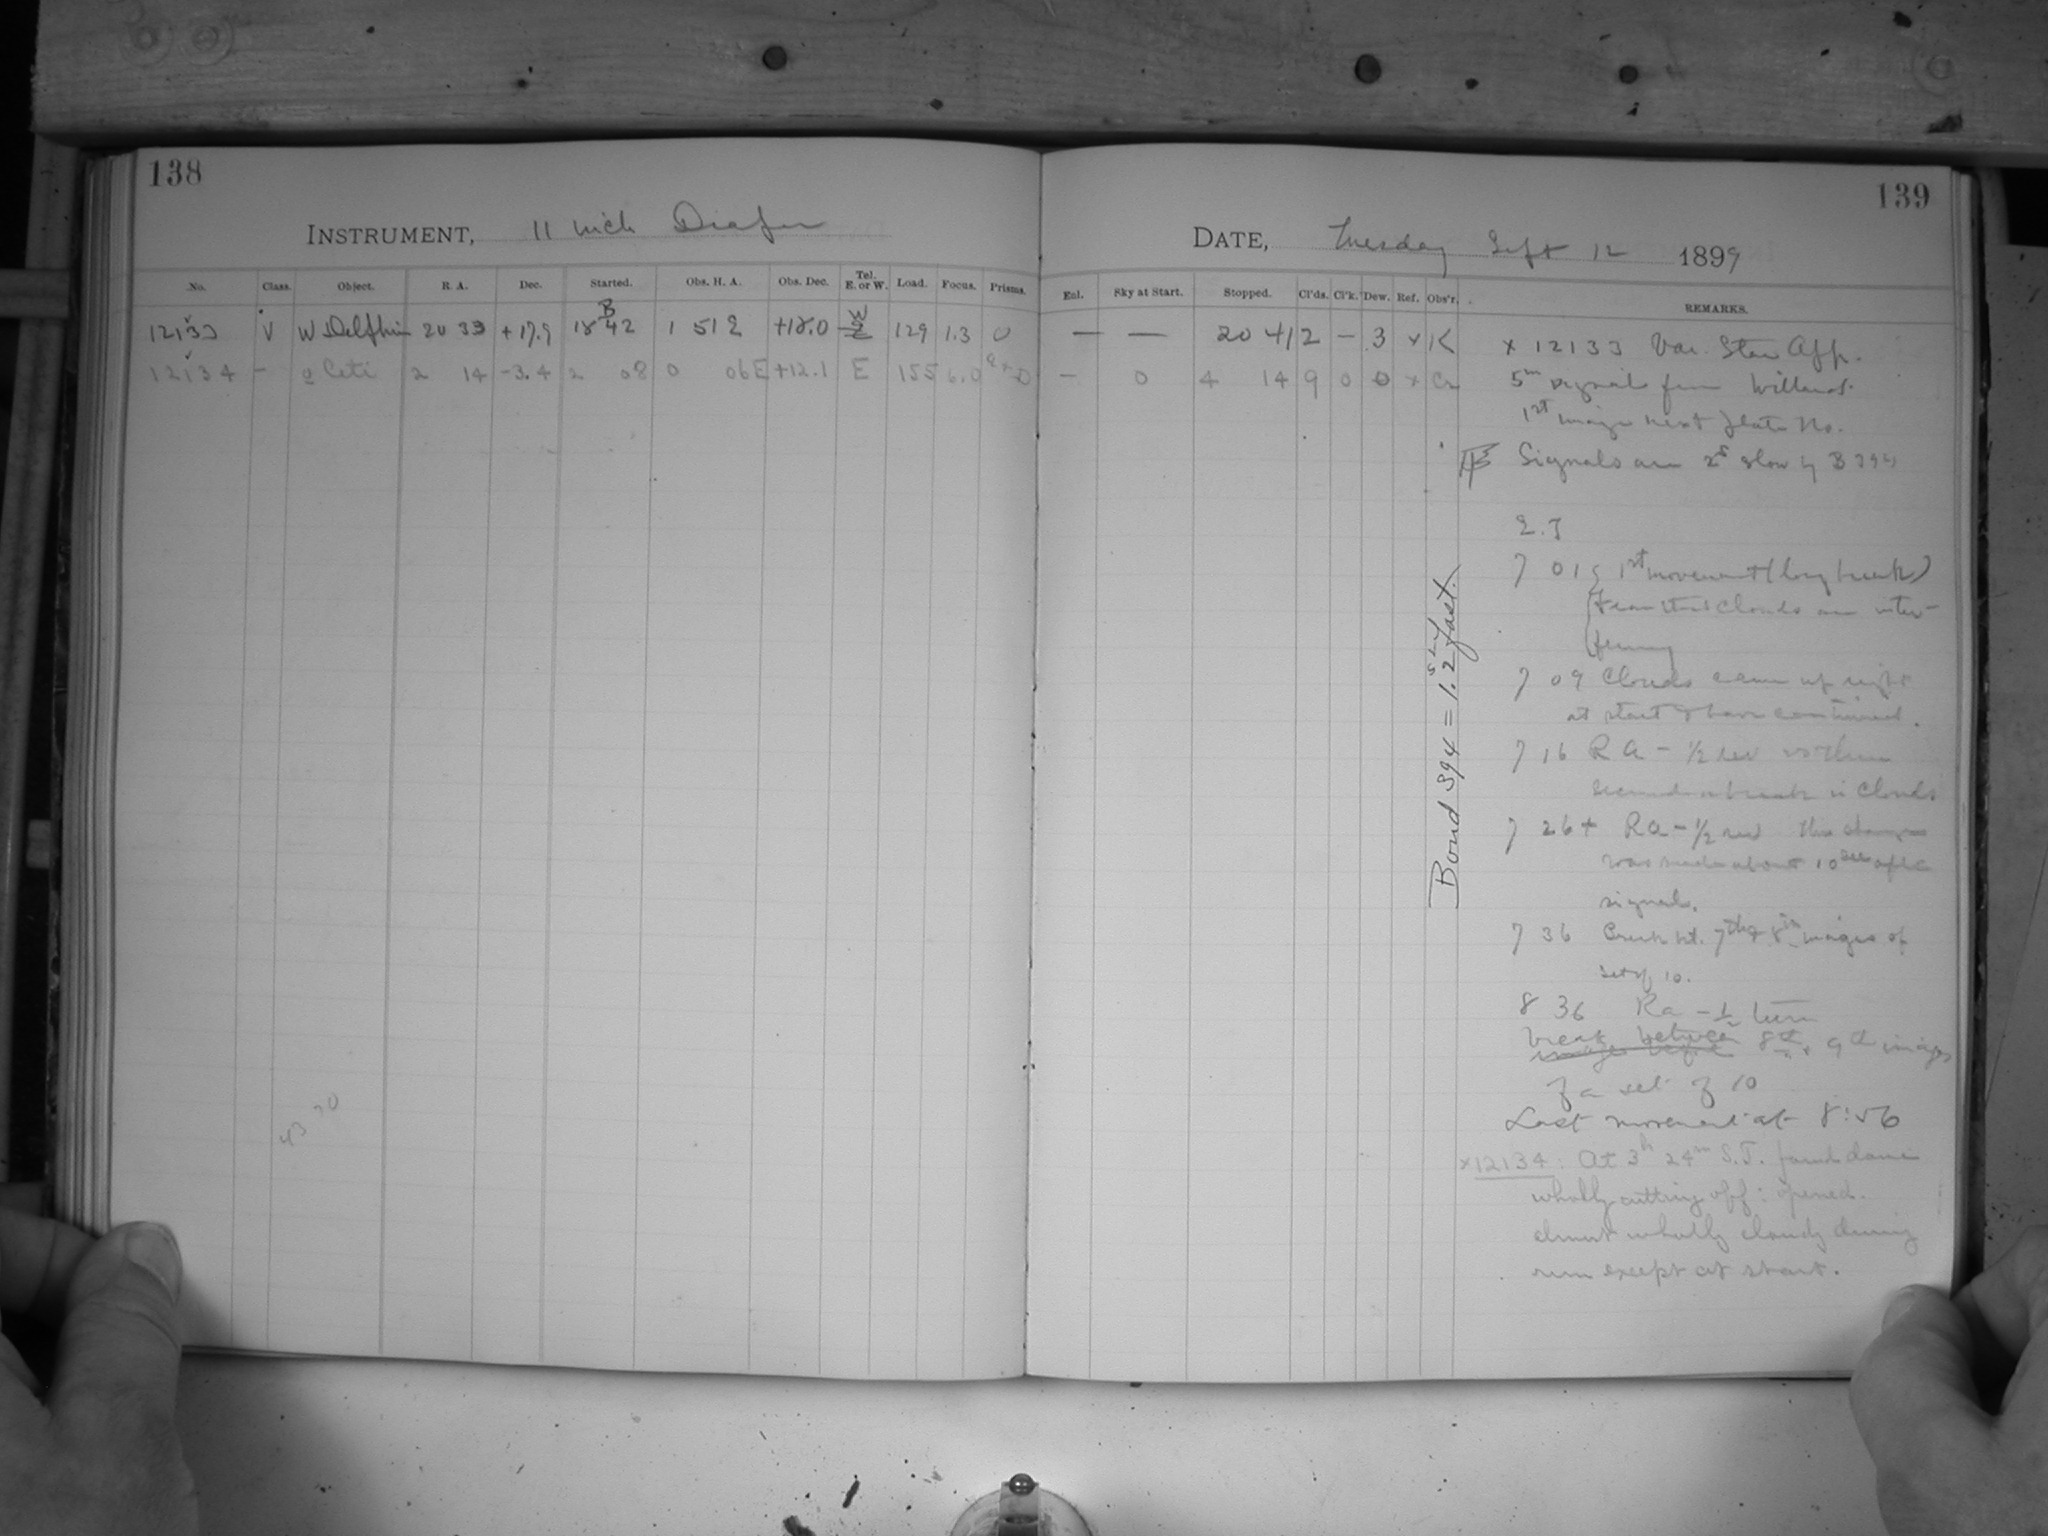 138
INSTRUMENT, 11 inch Draper
No. Class. Object. R. A. Dec. Started. Obs. H. A. Obs. Dec. Tel. E. or W. Load. Focus. Prisms.
12133 V W Delphin 20 33 +17.9 18 42 1 51 E +18.0 W 129 1.3 0
12134 – o Ceti 2 14 -3.4 2 08 0 06E +12.1 E 155 6.0
139
DATE, Tuesday Sept 12 1899
Enl. Sky at Start. Stopped. Cl'ds. Cl'k. Dew. Ref. Obs'r. REMARKS.
— — 20 41 2 – 3 x K
– 0 4 14 9 0 0 x Cr
x 12133 Var. Star App.
5m signals from Willard
1st image next plate No.
Signals are 2s slow by B 394
E. T
7 01 1st movement (long break)
fear that clouds are inter-
fering
7 09 Clouds came up right
at start & have continued.
7 16 RA – 1/2 rev within
second a break in clouds
7 26+ RA – 1/2 rev this change
was made about 10 sec after
signal.
7 36 Break bt. 7th & 8th images of
set of 10.
8 36 Ra – 1/2 turn
break between 8th & 9th images
of a set of 10
Last movement at 8:56
x12134: At 3h 24m S.T. found dome
wholly cutting off: opened.
almost wholly cloudy during
run except at start.
Bond 394 = 1.2s fast.
43 70